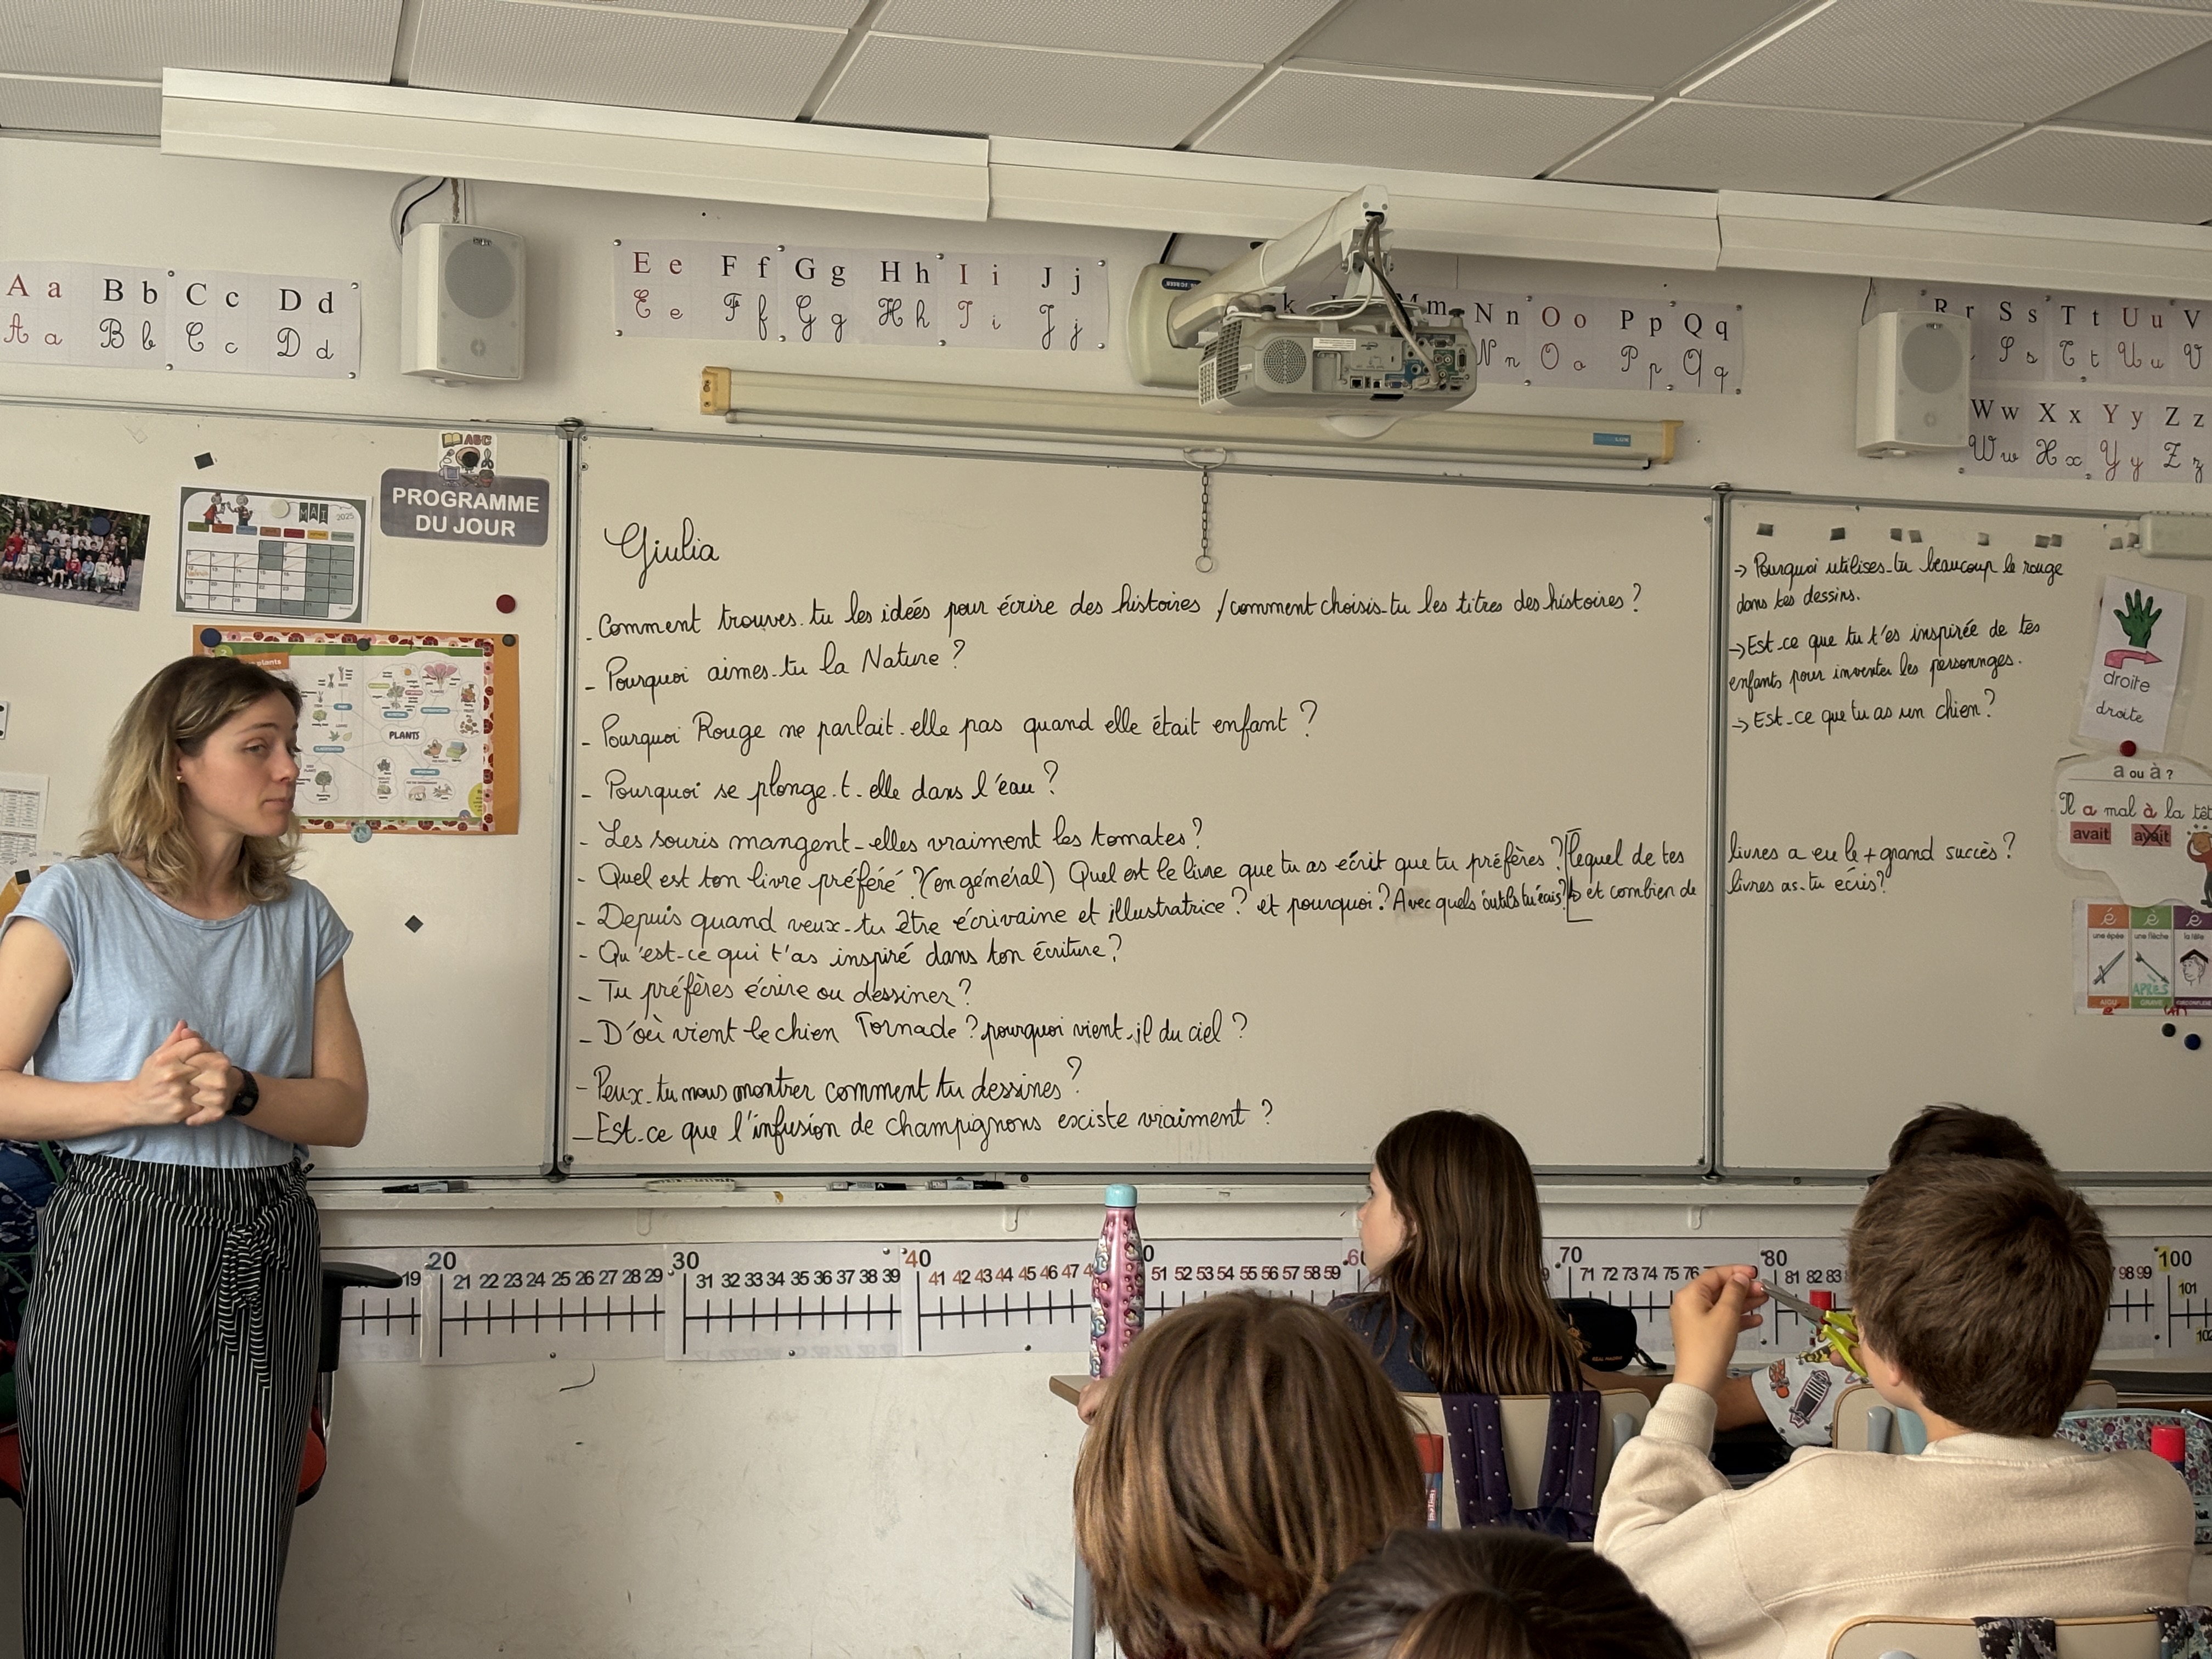 A a B b C c D d
A a B b C c D d
E e F f G g H h I i J j
E e F f G g H h I i J j
k m N n O o P p Q q
N n O o P p Q q
R r S s T t U u V
S s T t U u V
W w X x Y y Z z
W w X x Y y Z z
ABC
PROGRAMME
DU JOUR
MAI 2025
plants
PLANTS
Giulia
- Comment trouves-tu les idées pour écrire des histoires / comment choisis-tu les titres des histoires ?
- Pourquoi aimes-tu la Nature ?
- Pourquoi Rouge ne parlait-elle pas quand elle était enfant ?
- Pourquoi se plonge-t-elle dans l'eau ?
- Les souris mangent-elles vraiment les tomates ?
- Quel est ton livre préféré ? (en général) Quel est le livre que tu as écrit que tu préfères ? lequel de tes livres a eu le + grand succès ?
- Depuis quand veux-tu être écrivaine et illustratrice ? et pourquoi ? Avec quels outils tu écris ? et combien de livres as-tu écris ?
- Qu'est-ce qui t'as inspiré dans ton écriture ?
- Tu préfères écrire ou dessiner ?
- D'où vient le chien Tornade ? pourquoi vient-il du ciel ?
- Peux-tu nous montrer comment tu dessines ?
- Est-ce que l'infusion de champignons existe vraiment ?
-> Pourquoi utilises-tu beaucoup le rouge
dans tes dessins.
-> Est-ce que tu t'es inspirée de tes
enfants pour inventer les personnges.
-> Est-ce que tu as un chien ?
droite
droite
a ou à ?
Il a mal à la têt
avait avait
é è ê
une épée une flèche la tête
APRÈS
AIGU GRAVE CIRCONFLEXE
19 20 21 22 23 24 25 26 27 28 29 30 31 32 33 34 35 36 37 38 39 40 41 42 43 44 45 46 47 4 0 51 52 53 54 55 56 57 58 59 60 70 71 72 73 74 75 76 80 81 82 83 98 99 100
101
102